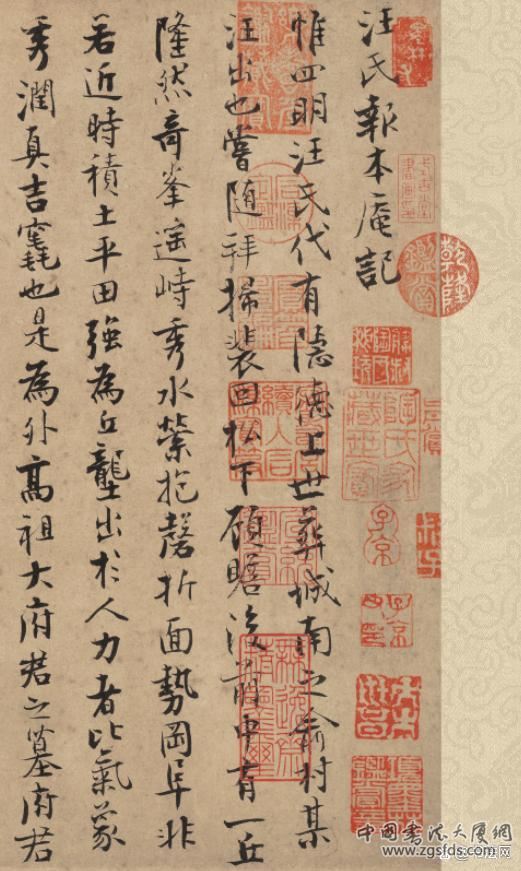 汪氏報本庵記
惟四明汪氏代有隱德上世葬城南之俞村某
汪出也嘗随拜掃裴回松下顧瞻後前中有一丘
隆然奇峯遥峙秀水縈抱磬折面勢岡阜非
若近時積土平田強為丘壟出於人力者比氣象
秀潤真吉竁也是為外高祖大府君之墓府君
乾隆鑑賞
子京
中国书法大厦网
www.zgsfds.com